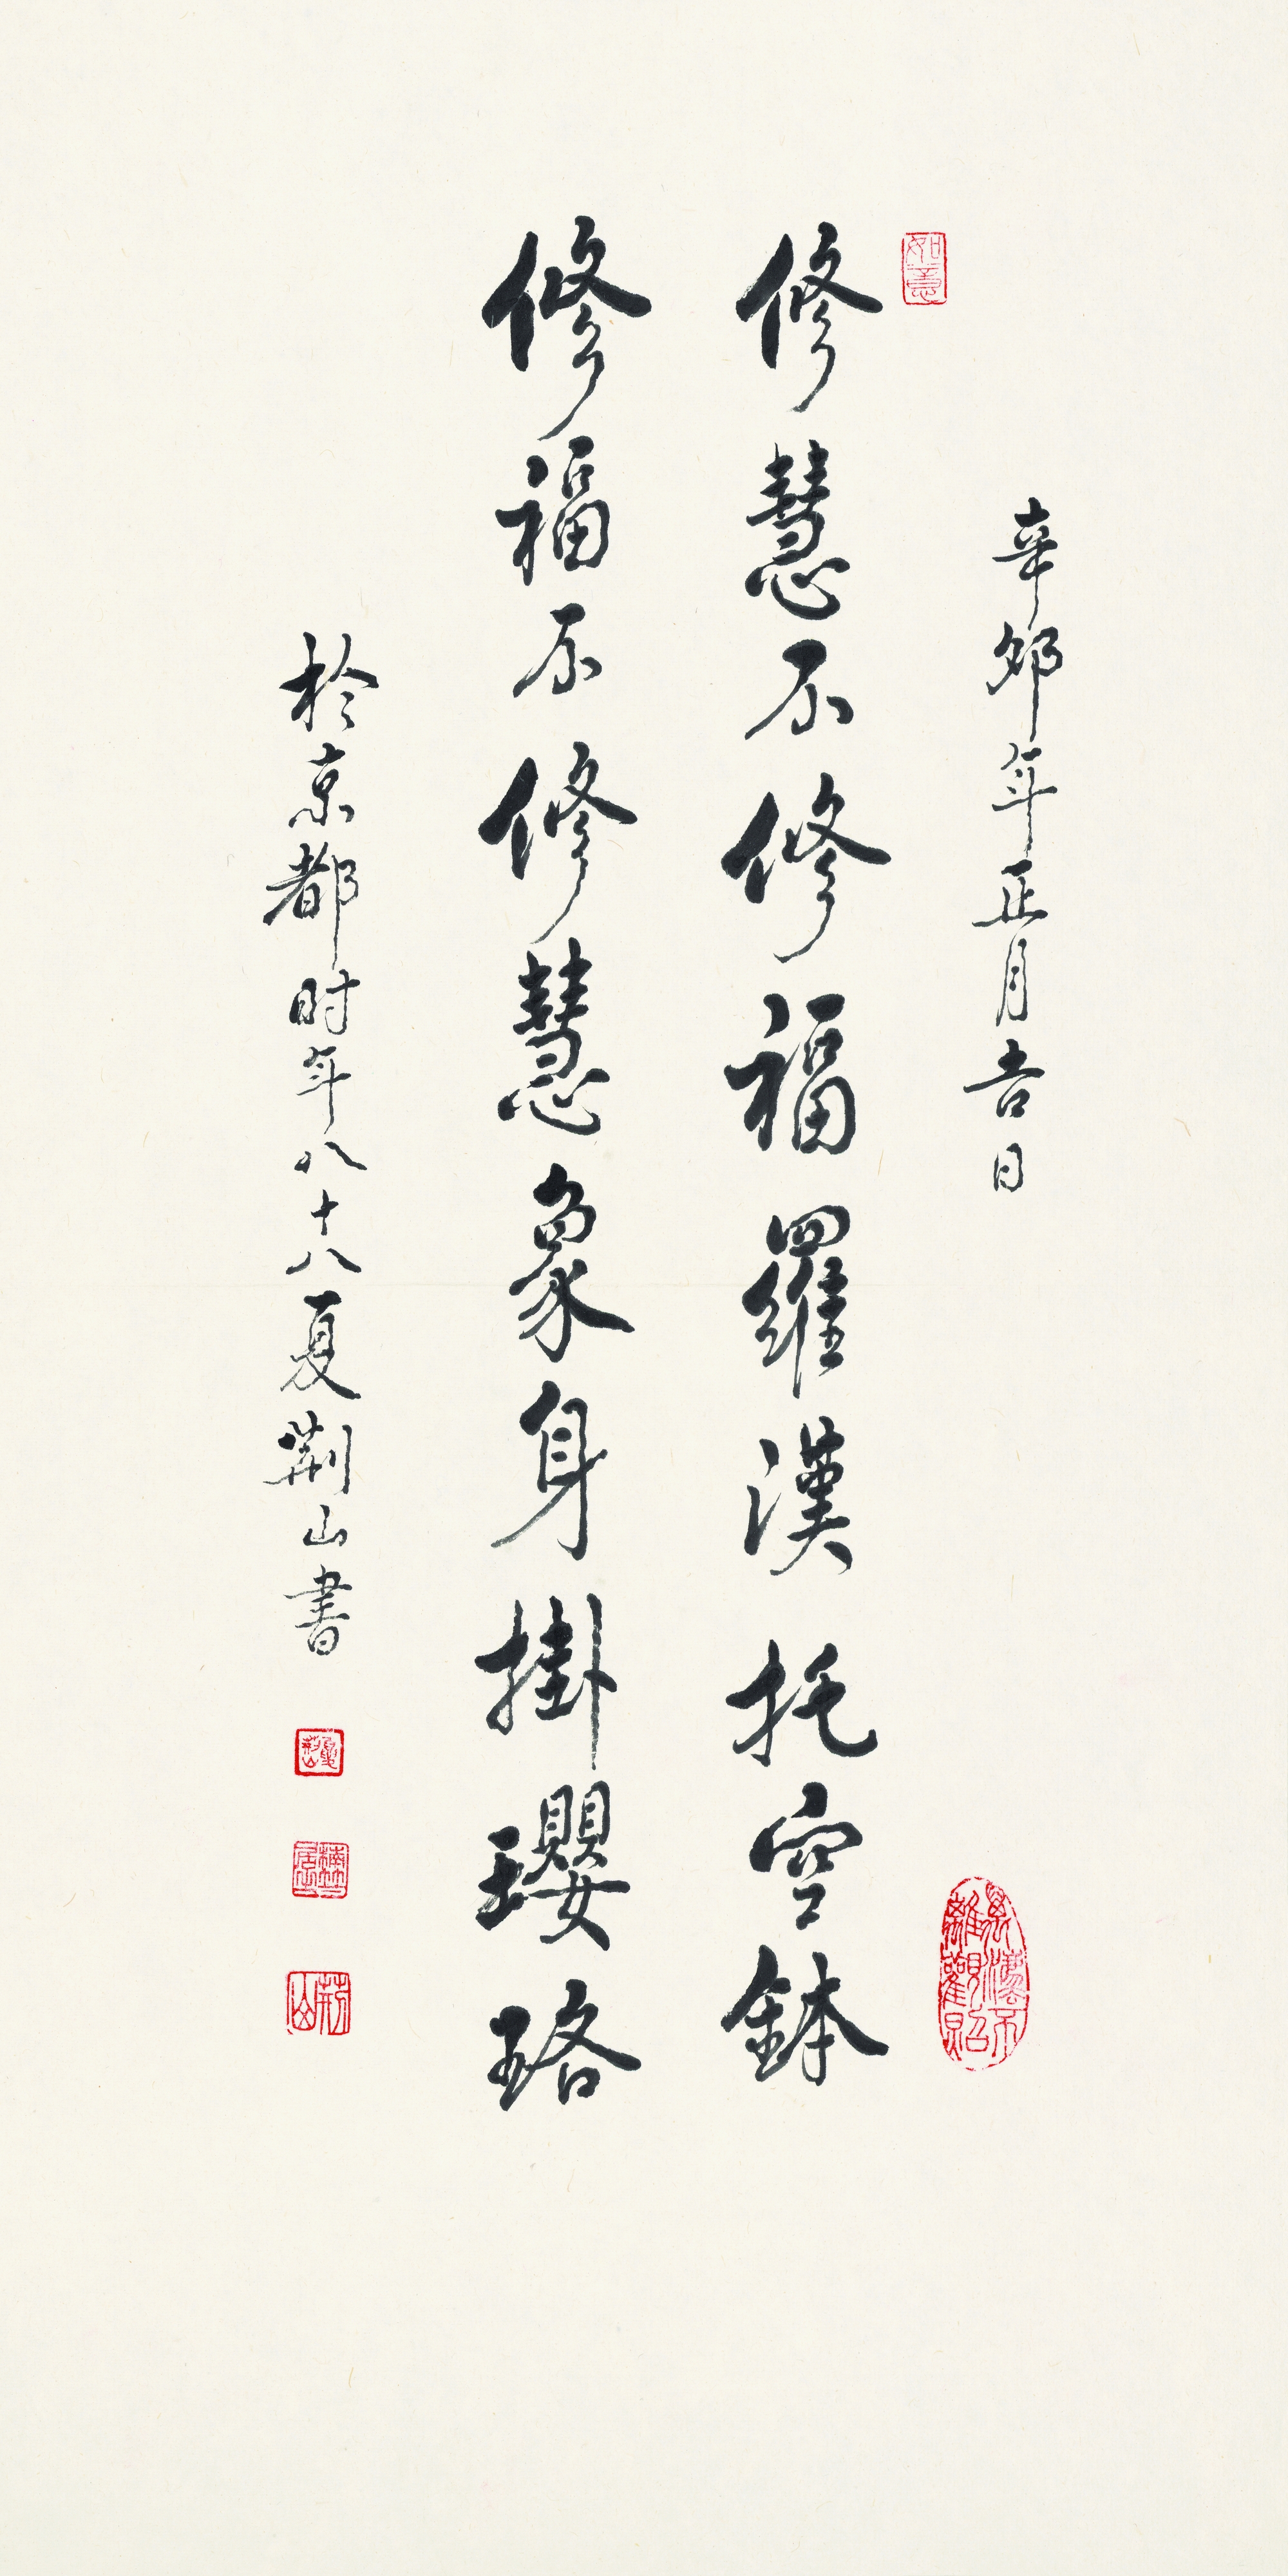 辛夘年正月吉日
如意
修慧不修福羅漢托空鉢
修福不修慧象身掛瓔珞
於京都时年八十八夏荆山書
荆山